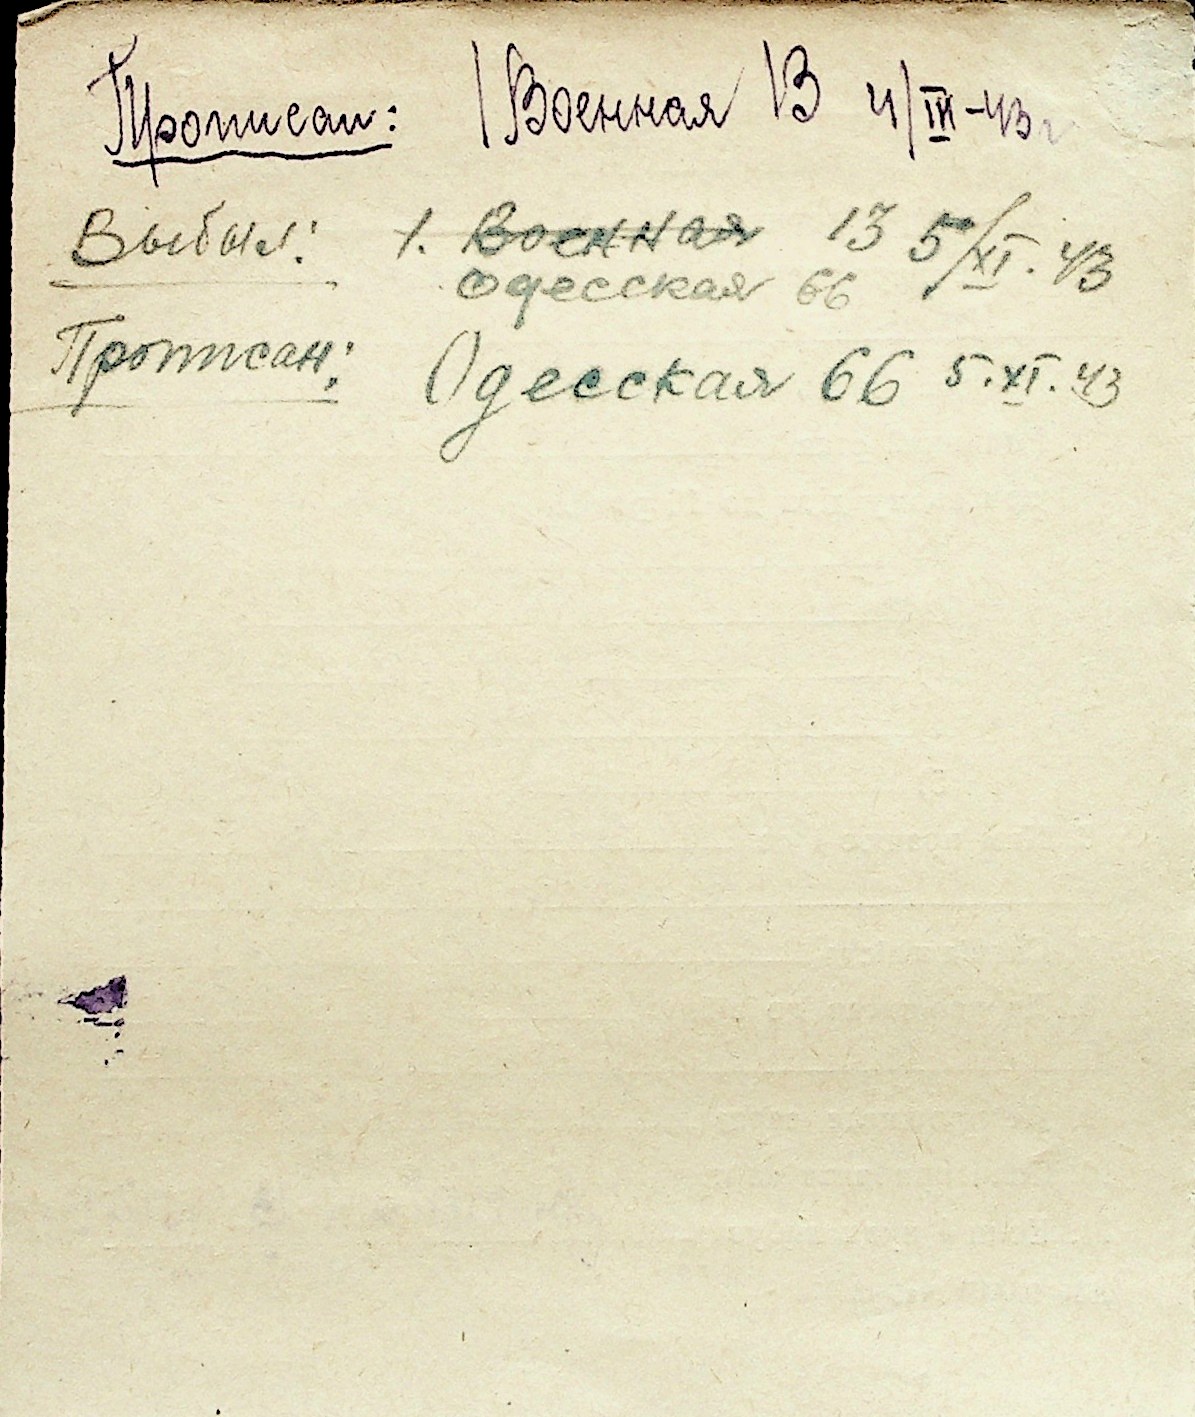 Прописан: 1 Военная 13 4/III-43 г
Выбыл: 1. Военная 13 5/XI. 43
Одесская 66
Прописан: Одесская 66 5.XI.43